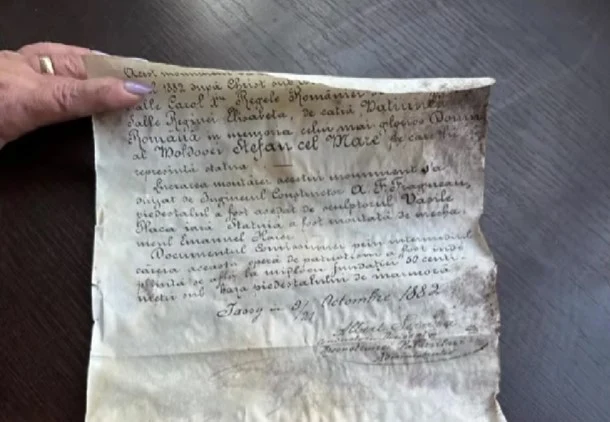 Acest monument
1882 după Christ sub
Sale Carol I^iu Regele României
Sale Reginei Elisaveta, de cătră
Română in memoria celui mai glorios Domn
al Moldovei Stefan cel Mare de care
represintă statua.
Lucrarea montărei acestui monument s'a
dirijat de Inginerul Constructor A. F.
piedestalul a fost asedat de sculptorul Vasile
Placa iară Statuia a fost montată de mecha-
nicul Emanuel
Documentul Comissiunei prin intermediul
căreia această operă de patriotism a fost
se află la mijlocul fundaţiei 50 centi-
metri sub baza piedestalului de marmoră
Iassy in 9/21 Octombrie 1882
Albert